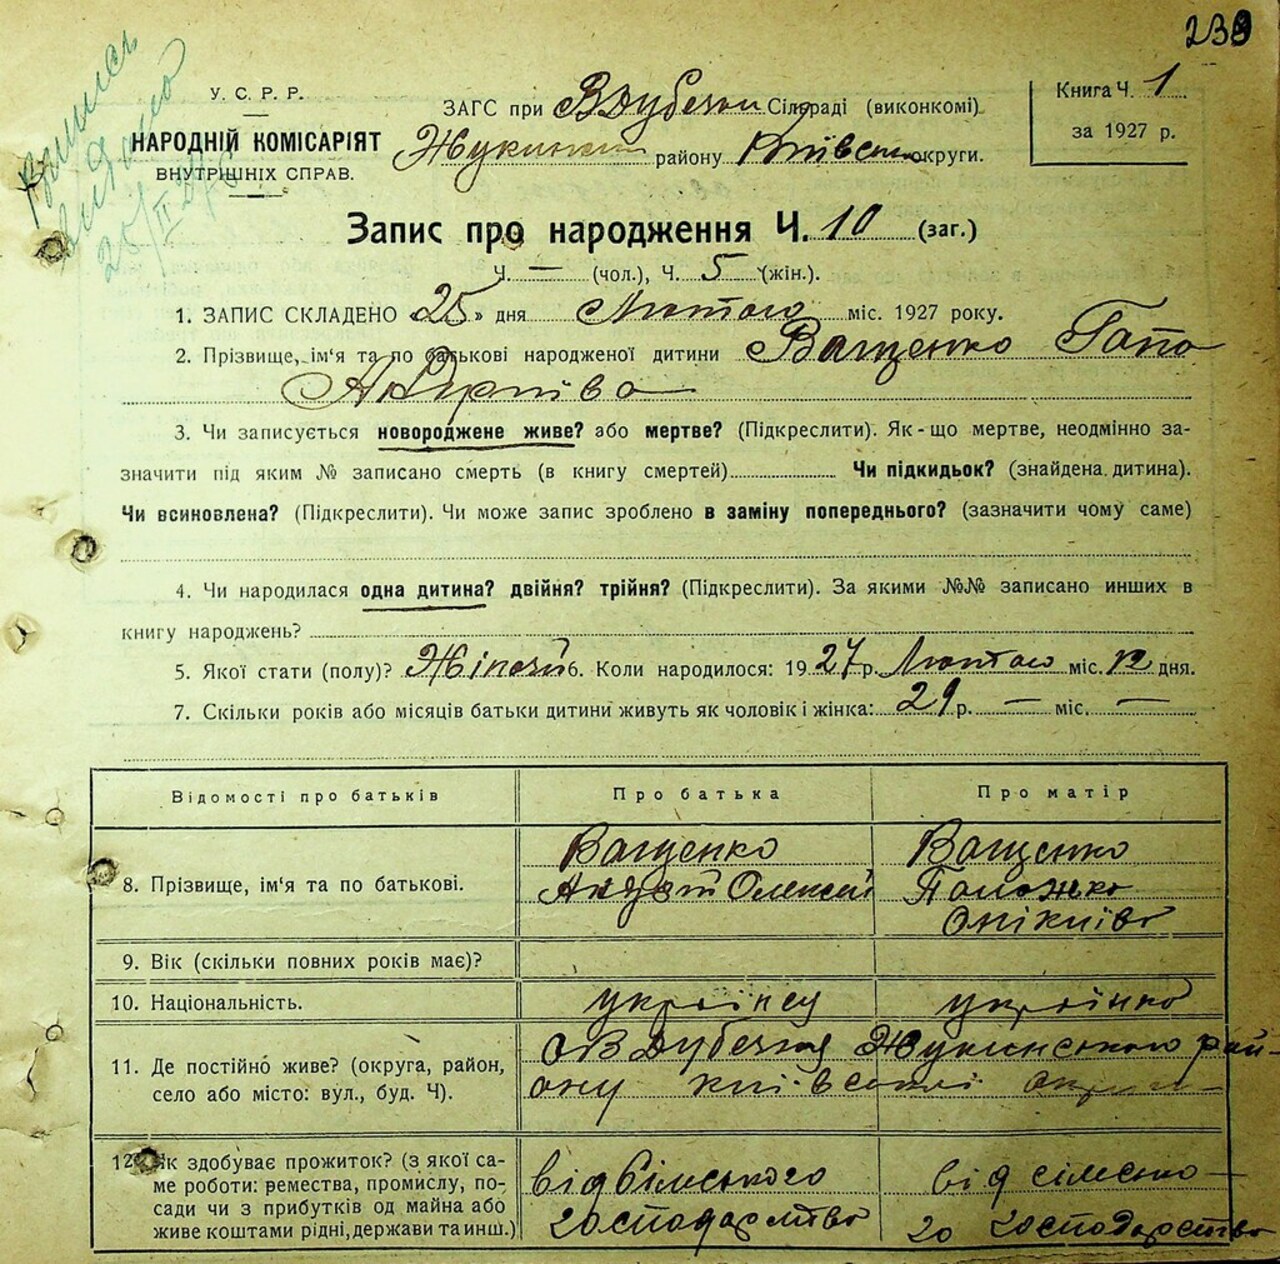 239
У. С. Р. Р.
НАРОДНІЙ КОМІСАРІЯТ
ВНУТРІШНІХ СПРАВ.
ЗАГС при В Дубечан Сільраді (виконкомі)
Жукинськ району Київськ округи.
Книга Ч. 1
за 1927 р.
Запис про народження Ч. 10 (заг.)
Ч. — (чол.), Ч. 5 (жін.).
1. ЗАПИС СКЛАДЕНО «25» дня Лютого міс. 1927 року.
2. Прізвище, ім'я та по батькові народженої дитини Ващенко Гапа
Андріїва
3. Чи записується новороджене живе? або мертве? (Підкреслити). Як-що мертве, неодмінно за-
значити під яким № записано смерть (в книгу смертей) Чи підкидьок? (знайдена дитина).
Чи всиновлена? (Підкреслити). Чи може запис зроблено в заміну попереднього? (зазначити чому саме)
4. Чи народилася одна дитина? двійня? трійня? (Підкреслити). За якими №№ записано инших в
книгу народжень?
5. Якої стати (полу)? Жіночій 6. Коли народилося: 1927 р. Лютого міс. 12 дня.
7. Скільки років або місяців батьки дитини живуть як чоловік і жінка: 29 р. — міс. —
Відомості про батьків Про батька Про матір
8. Прізвище, ім'я та по батькові.
Ващенко
Андрій Олексій
Ващенко
Палажка
Оникиїва
9. Вік (скільки повних років має)?
10. Національність. українец українка
11. Де постійно живе? (округа, район,
село або місто: вул., буд. Ч).
с В Дубечня Жукинського рай-
ону київської округи
12. Як здобуває прожиток? (з якої са-
ме роботи: ремества, промислу, по-
сади чи з прибутків од майна або
живе коштами рідні, держави та инш.)
від Сільського
господарства
від сільсько-
го господарства